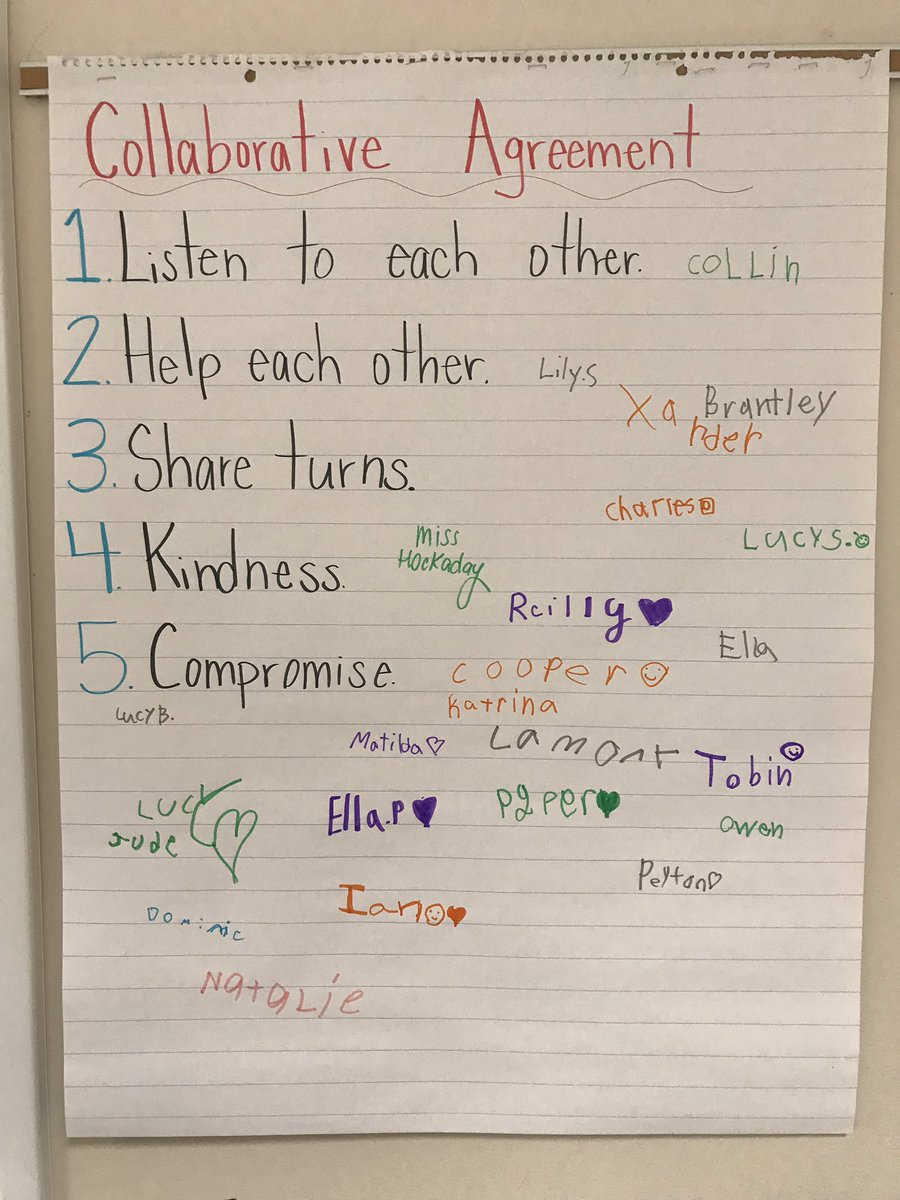 Collaborative Agreement
1. Listen to each other. COLLin
2. Help each other. Lily.S
Xander
Brantley
3. Share turns.
charles
LUCYS.
4. Kindness. Miss
Hockaday
Reilly
Ella
5. Compromise. cooper
Katrina
LucyB.
Matilda
Lamont
Tobin
LUCY
Ella.P
PIPER
owen
Jude
Peyton
Ian
Dominic
NataLie